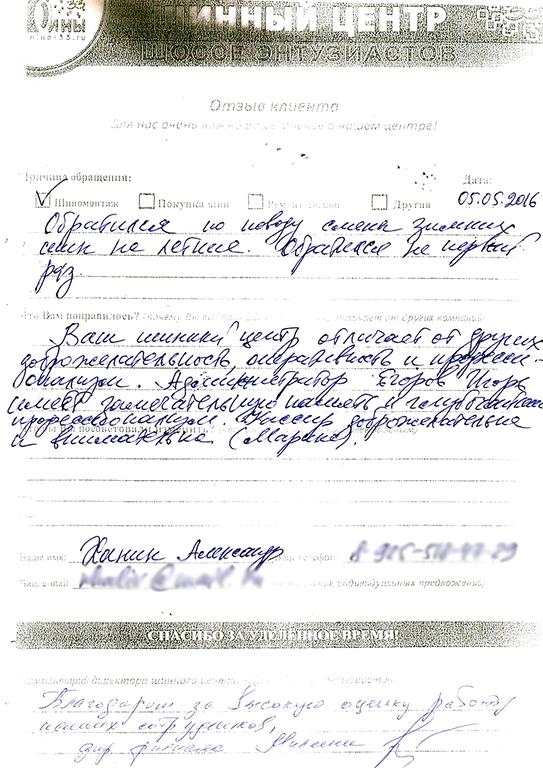 ШИННЫЙ ЦЕНТР
ШОССЕ ЭНТУЗИАСТОВ
Отзыв клиента
Для нас очень важно о нашем центре!
Причина обращения: Дата:
Шиномонтаж Покупка шин Ремонт дисков Другая 05.05.2016
Обратился по поводу смена зимних
шин на летние. Обратился не первый
раз
Что Вам понравилось?
Ваш шинный центр отличает от других
доброжелательность, оперативность и професси-
онализм. Администратор Егоров Игорь
имеет замечательную память и
профессионализм. Кассир доброжелательна
и внимательна (Марина).
Ваше имя: Ханин Александр телефон:
Ваш e-mail индивидуальных предложений)
СПАСИБО ЗА УДЕЛЁННОЕ ВРЕМЯ!
Комментарий директора шинного центра
Благодарим за высокую оценку работы
наших сотрудников,
дир филиала